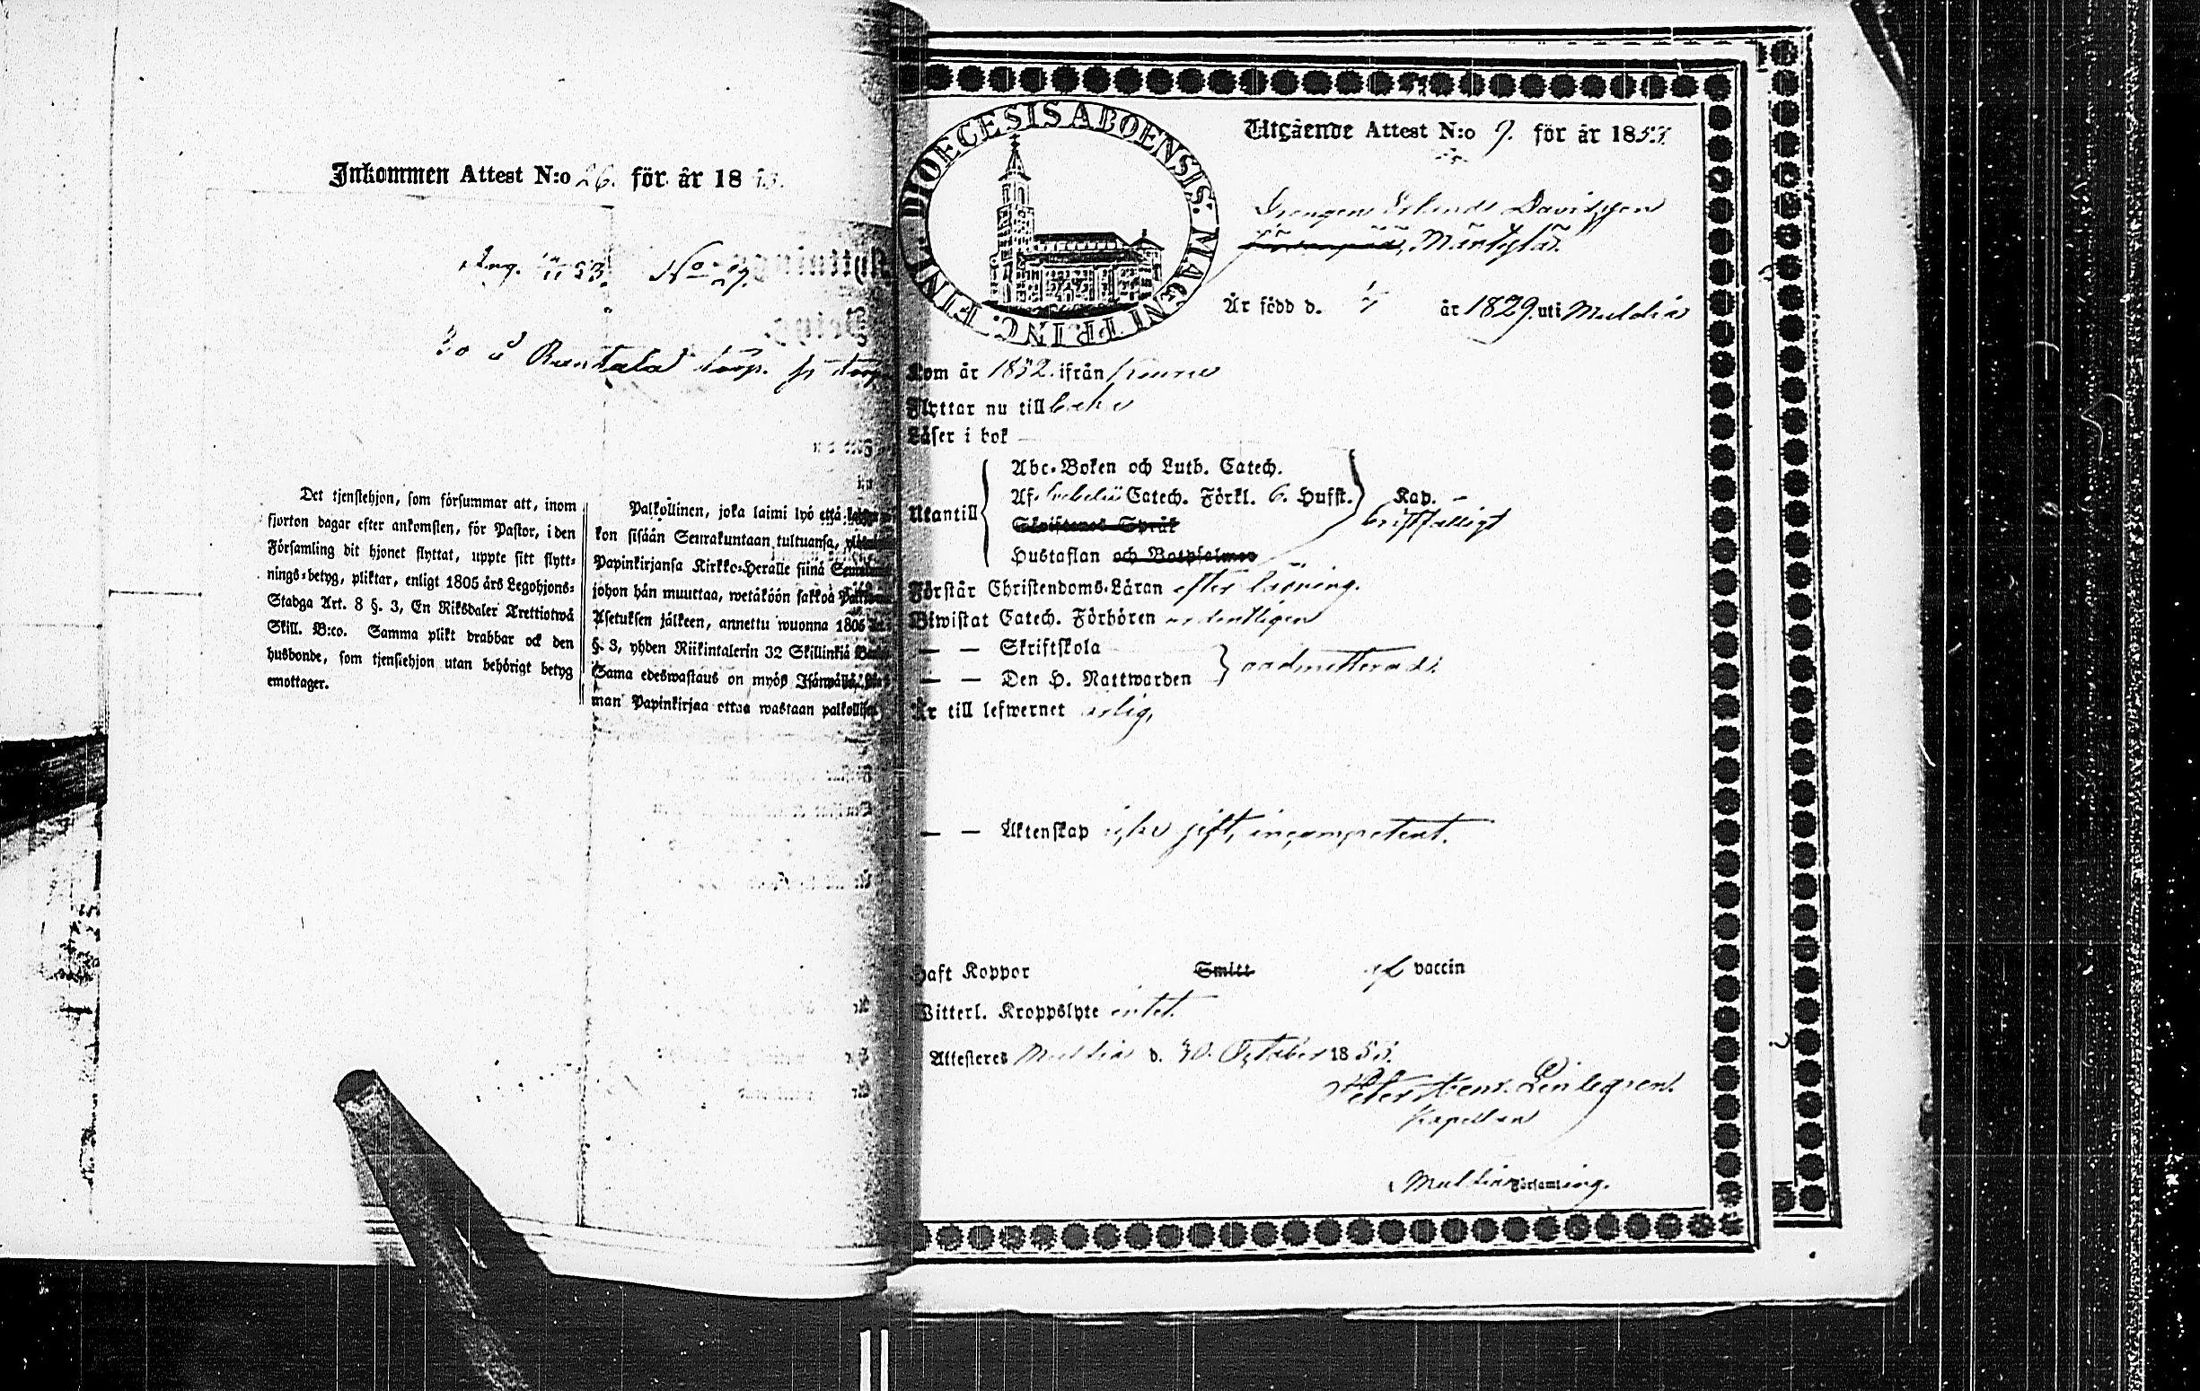 Inkommen Attest N:o 26. för år 18 53.
Ang. 53. No 29.
Bo å Rantala torp.
Det tjenstehjon, som försummar att, inom
fjorton dagar efter ankomsten, för Pastor, i den
Församling dit hjonet flyttat, uppte sitt flytt-
nings-betyg, pliktar, enligt 1805 års Legohjons-
Stadga Art. 8 §. 3, En Riksdaler Trettiotwå
Skill. B:co. Samma plikt drabbar ock den
husbonde, som tjenstehjon utan behörigt betyg
emottager.
Palkollinen, joka laimi lyö että
kon sisään Seurakuntaan tultuansa,
Papinkirjansa Kirkko-Heralle siinä
johon hän muuttaa, wetäköön sakkoa
Asetuksen jälkeen, annettu wuonna 1805
§. 3, yhden Riikintalerin 32 Skillinkiä
Sama edeswastaus on myös Isännällä,
man Papinkirjaa ottaa wastaan palkollisen
DIOECESIS ABOENSIS: MAGNI PRINC. FINL.
Utgående Attest N:o 9. för år 1853
Drengen Erland Davidsson
Är född d. 1/7 år 1829. uti Multia
Kom år 1852. ifrån Keuru
Flyttar nu till
Läser i bok
Abc-Boken och Luth. Catech.
Utantill
Af Svebelii Catech. Förkl. 6. Hufst. Kap.
bristfälligt
Skriftenes Språk
Hustaflan och Botpsalmer
Förstår Christendoms-Läran efter läsning.
Biwistat Catech. Förhören ordentligen
— — Skriftskola
— — Den H. Nattwarden
oadmitterad.
Är till lefwernet ärlig,
— — Äktenskap icke gift, incompetent.
Haft Koppor Smitt vaccin
Witterl. Kroppslyte intet.
Attesteres Multia d. 30. October 1853.
Kapellan
Multia Församling.